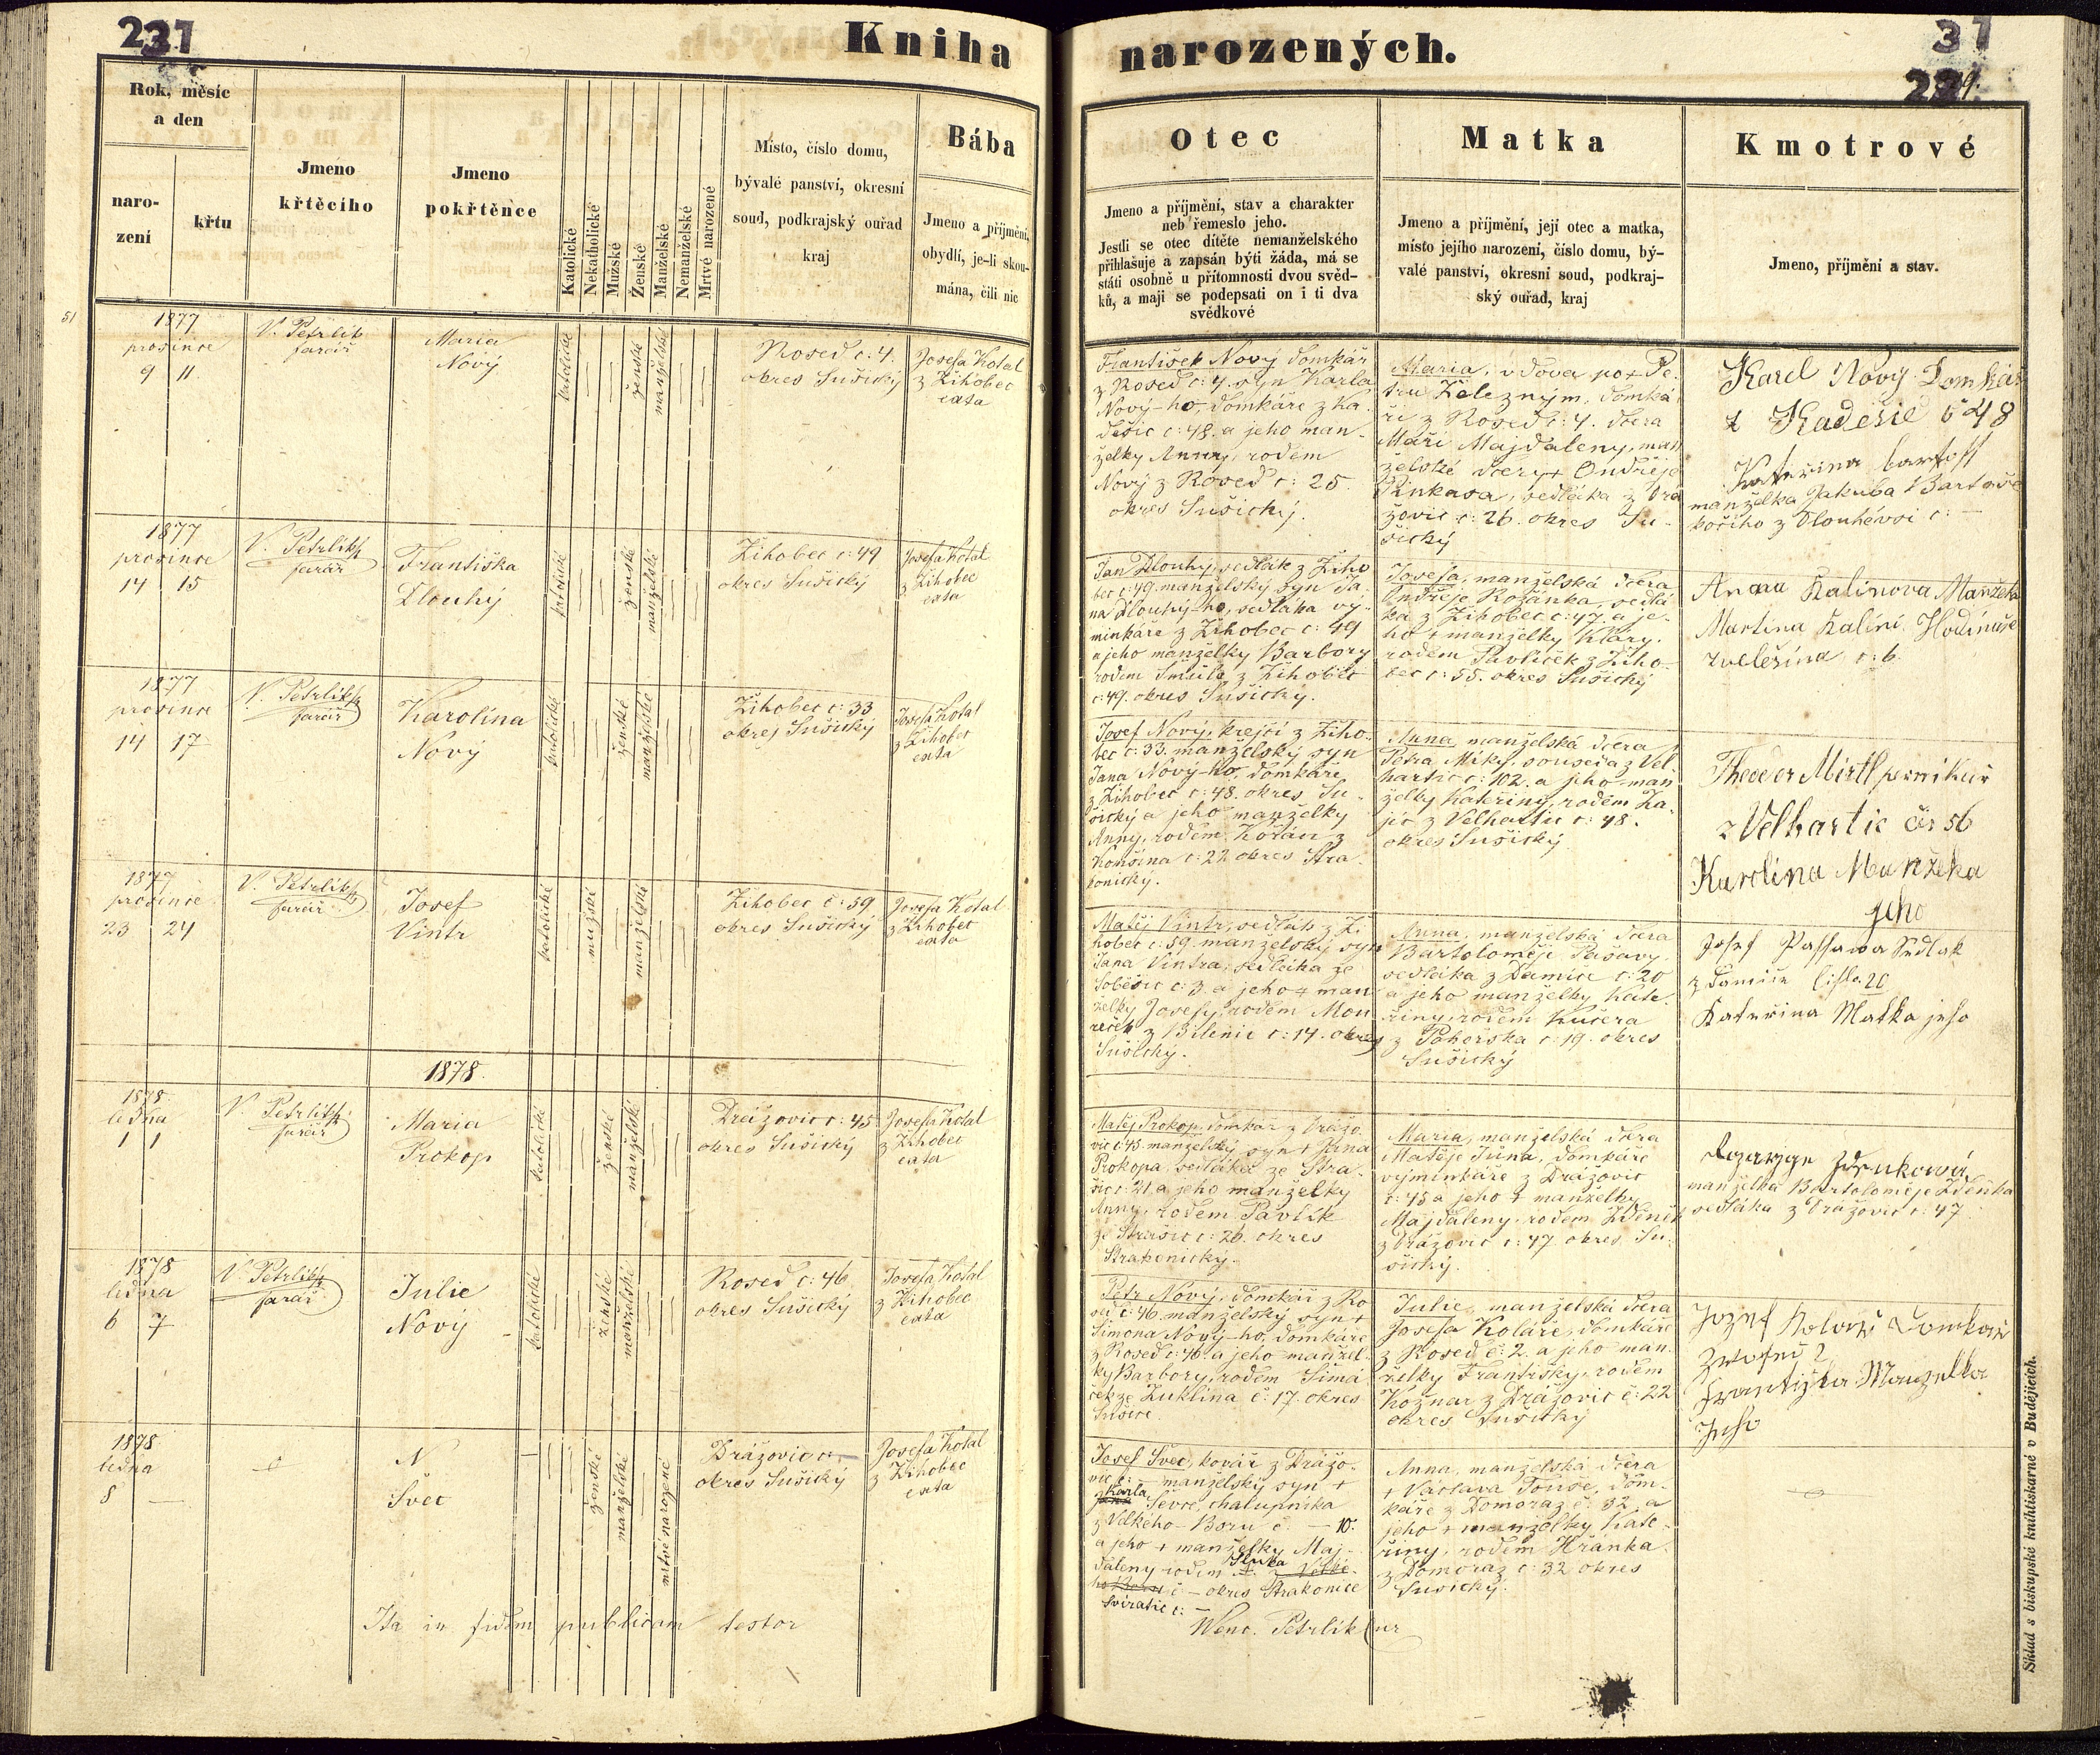 231
Kniha
narozených.
37
Rok, měsíc
a den
naro-
zení
křtu
Jméno
křtěcího
Jmeno
pokřtěnce
Katolické
Nekatholické
Mužské
Ženské
Manželské
Nemanželské
Mrtvé narozené
Místo, číslo domu,
bývalé panství, okresní
soud, podkrajský ouřad
kraj
Bába
Jmeno a příjmění,
obydlí, je-li skou-
mána, čili nic
Otec
Jmeno a příjmění, stav a charakter
neb řemeslo jeho.
Jestli se otec dítěte nemanželského
přihlašuje a zapsán býti žáda, má se
státi osobně u přítomnosti dvou svěd-
ků, a mají se podepsati on i ti dva
svědkové
Matka
Jmeno a příjmění, její otec a matka,
místo jejího narození, číslo domu, bý-
valé panství, okresní soud, podkraj-
ský ouřad, kraj
Kmotrové
Jmeno, příjmění a stav.
51
1877
prosince
9 11
V. Petrlík
farář
Maria
Nový
katolické
ženské
manželské
Rosed č: 4.
okres Sušický
Josefa Kotal
z Žihobec
exta
František Nový domkář
z Rosed č: 4. syn Karla
Nový-ho, domkáře z Ka-
dešic č: 48. a jeho man-
želky Anny, rodem
Nový z Rosed č: 25.
okres Sušický.
Maria, vdova po + Pe-
tru Železným, domká-
ři z Rosed č: 4. dcera
Máří Majdaleny, man
želské dcery + Ondřeje
Pinkasa, sedláka z Drá
žovic č: 26. okres Su-
šický
Karel Nový Domkář
z Kadešic č 48
Kateřina
manželka Jakuba Bartoše
kočího z Dlouhévsi č: —
1877
prosince
14 15
V. Petrlík
farář
Františka
Dlouhý
katolické
ženské
manželské
Žihobec č: 49
okres Sušický
Josefa Kotal
z Žihobec
exta
Jan Dlouhý, sedlák z Žiho
bec č: 49. manželský syn Ja-
na Dlouhý-ho, sedláka vý-
minkáře z Žihobec č: 49
a jeho manželky Barbory
rodem Šmůla z Žihobec
č: 49. okres Sušický.
Josefa, manželská dcera
Ondřeje Rožánka, sedlá
ka z Žihobec č: 47. a je-
ho + manželky Kláry.
rodem Pavlíček z Žiho-
bec č: 55. okres Sušický
Anna Kalinova Manželka
Martina Kalíni Hodináře
z Volešína č: 6.
1877
prosince
14 17
V. Petrlík
farář
Karolina
Nový
katolické
ženské
manželské
Žihobec č: 33
okres Sušický
Josefa Kotal
z Žihobec
exta
Josef Nový, krejčí z Žiho-
bec č: 33. manželský syn
Jana Nový-ho, domkáře
z Žihobec č: 48. okres Su-
šický a jeho manželky
Anny, rodem Kořán z
č: 22 okres Stra-
konický.
Anna manželská dcera
Petra Míky, souseda z Vel
hartic č: 102. a jeho man
želky Kateřiny, rodem Za-
jíc z Velhartic č: 48.
okres Sušický
Theodor Mirtl perníkář
z Velhartic čís 56
Karolina Manželka
jeho
1877
prosince
23 24
V. Petrlík
farář
Josef
Vintr
katolické
mužské
manželské
Žihobec č: 59
okres Sušický
Josefa Kotal
z Žihobec
exta
Matěj Vintr, sedlák z Ži
hobec č: 59. manželský syn
Jana Vintra, sedláka ze
Soběšic č: 3. a jeho + man
želky Josefy, rodem Mou
reček z Bílenic č: 14. okres
Sušický.
Anna, manželská dcera
Bartoloměje Pašavy,
sedláka z Damíče č: 20
a jeho manželky Kate-
řiny, rodem Kučera
z Pohorska č: 19. okres
Sušický
Josef Passawa Sedlak
z Damíče číslo 20
Kateřina Matka jeho
1878.
1878
ledna
1 1
V. Petrlík
farář
Maria
Prokop
katolické
ženské
manželské
Drážovic č: 45
okres Sušický
Josefa Kotal
z Žihobec
exta
Matěj Prokop, domkář z Drážo
vic č: 45 manželský syn + Jana
Prokopa, sedláka ze Stra-
šic č: 21. a jeho manželky
Anny, rodem Pavlík
ze Strašic č: 26. okres
Strakonický.
Maria, manželská dcera
Matěje Jůna, domkáře
výminkáře z Drážovic
č: 45 a jeho + manželky
Majdaleny, rodem Zdeněk
z Drážovic č: 47. okres Su-
šický.
manželka Bartoloměje Zdeňka
sedláka z Drážovic č: 47
1878
ledna
6 7
V. Petrlík
farář
Julie
Nový
katolické
ženské
manželské
Rosed č: 46
okres Sušický
Josefa Kotal
z Žihobec
exta
Petr Nový, domkář z Ro
sed č: 46 manželský syn +
Šimona Nový-ho, domkáře
z Rosed č: 46. a jeho manžel-
ky Barbory, rodem Šimá
ček ze Zuklína č: 17. okres
Sušice.
Julie, manželská dcera
Josefa Koláře, domkáře
z Rosed č: 2. a jeho man-
želky Františky, rodem
Kožnar z Drážovic č: 22
okres Sušický
Jozef Kolář Domkář
z 2
Frantiska Manzelka
Jeho
1878
ledna
8 —
N
Švec
ženské
manželské
mrtvé narozené
Drážovic č: —
okres Sušický
Josefa Kotal
z Žihobec
exta
Josef Švec, kovář z Drážo-
vic č: — manželský syn +
Karla
Ševce, chalupníka
z Velkého-Boru č. — 10.
a jeho + manželky Maj-
daleny rodem
č — okres Strakonice
Svíratic č: —
Anna, manželská dcera
+ Václava Touše, dom-
káře z Domoraz č: 32. a
jeho + manželky Kate-
řiny, rodem Hránka
z Domoraz č: 32 okres
Sušický.
Ita in fidem publicam testor
Wenc. Petrlík
Sklad s biskupské knihtiskárně v Budějicích.